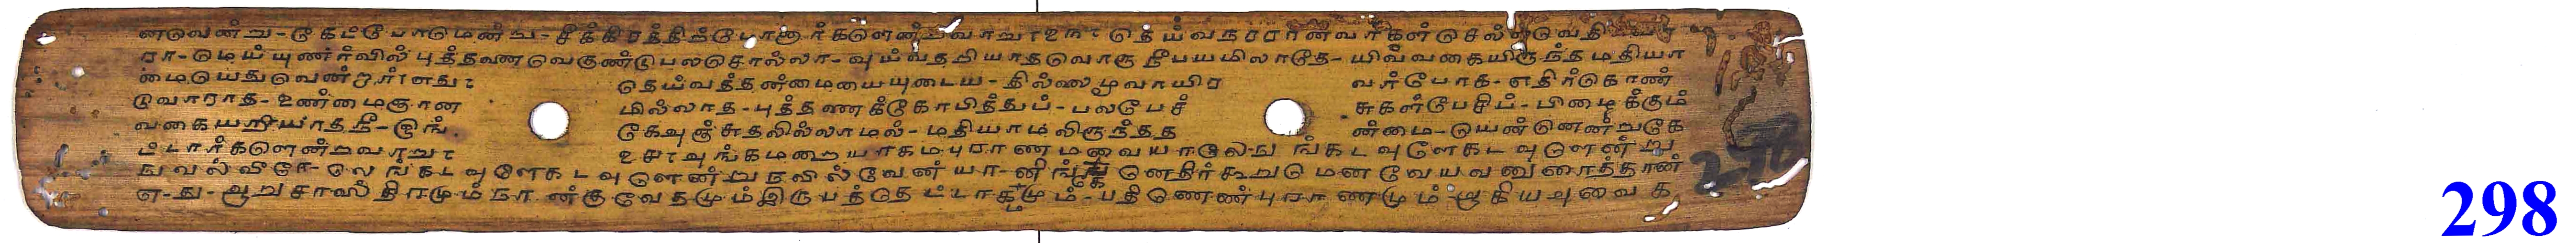 னடுவன்று - கேட்போடுமன்று - சீக்கிரத்திற்போனார்களென்றவாறு உ௩ தெய்வநரரானவர்கள் செல்லுவதி
ரா - மெய்யுணர்வில் புத்தவணவெகுண்டு பலசொல்லா - வுய்வதறியாதவொரு நீபயமிலாதே - யிவ்வகையிருந்த மதியா
மையெதுவென்றார் எது தெய்வத்தண்மையையுடைய - தில்லைமூவாயிர வர்போக - எதிர்கொண்
டுவாராத - உண்மைஞான மில்லாத - புத்தணக்கோபித்துப் - பலபேச் சுகள்பேசிப் - பிழைக்கும்
வகையறியாதநீ - இங் கேவுஞ்சுதலில்லாமல் - மதியாமலிருந்தத ன்மை - யேன்னென்றுகே
ட்டார்களென்றவாறு உ௪ வுங்கமறையாகமபுராணமவையாலே - நு ங்கடவுளேகடவுளென் று
நுவல்வீரே - லெங்கடவுளேகடவுளென்று நவில்வேன் யா - னிங்கு னெதிர்கூறுமென வேயவனுரைத்தான்
எ - து - ஆறுசாஸ்திரமும் நா ன்குவேதமும் இருபத்தெட்டாகமமும் - பதினெண்புராணமும் - ஆகியவவை க
298